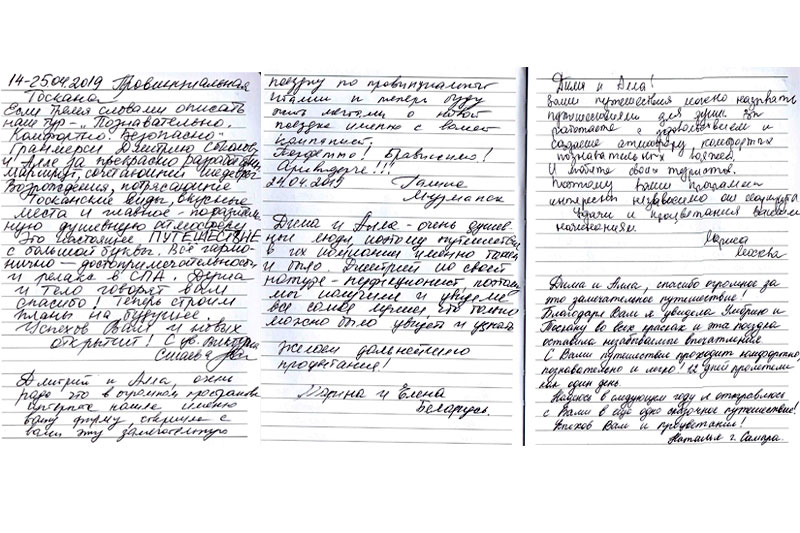 14-25.04.2019 Провинциальная
Тоскана
Если тремя словами описать
наш тур - "Познавательно.
Комфортно. Безопасно"
Гранмерси Дмитрию Соколову
и Алле за прекрасно разработанный
маршрут, сочетающий шедевры
Возрождения, потрясающие
Тосканские виды, вкусные
места и главное - поразитель
ную душевную атмосферу
Это настоящее ПУТЕШЕСТВИЕ
с большой буквы. Все гармо-
нично - достопримечательности
и релакс в СПА. Душа
и тело говорят вам
спасибо! Теперь строим
планы на будущее.
Успехов Вам и новых
открытий! С ув.
Дмитрий и Алла, очень
рада что в огромном пространстве
интернета нашла именно
вашу фирму, с
вами эту замечательную
поездку по провинциальной
Италии и теперь буду
жить мечтами о новой
поездке именно с вашей
компанией.
Браво!
24.04.2019 Галина
Мурманск
Дима и Алла - очень душев
ные люди, поэтому путешествие
в их исполнении именно таким
и было. Дмитрий по своей
натуре - перфекционист, поэтому
мы получили и увидели
все самое лучшее, что только
можно было увидеть и узнать
Желаем дальнейшего
процветания!
Марина и Елена
Беларусь
Дима и Алла!
Ваши путешествия можно назвать
путешествиями для души. Вы
работаете с удовольствием и
создаете атмосферу комфортных
познавательных вояжей.
И любите своих туристов.
Поэтому ваши программы
интересны независимо от
Удачи и процветания вашей
компании.
Лариса
Москва
Дима и Алла, спасибо огромное за
это замечательное путешествие!
Благодаря Вам я увидела Умбрию и
Тоскану во всех красках и эта поездка
оставила неизгладимое впечатление.
С Вами путешествие проходит комфортно,
познавательно и легко! 12 дней пролетели
как один день.
Надеюсь в следующем году я отправлюсь
с Вами в ещё одно сказочное путешествие!
Успехов Вам и процветания!
Наталья г. Самара.